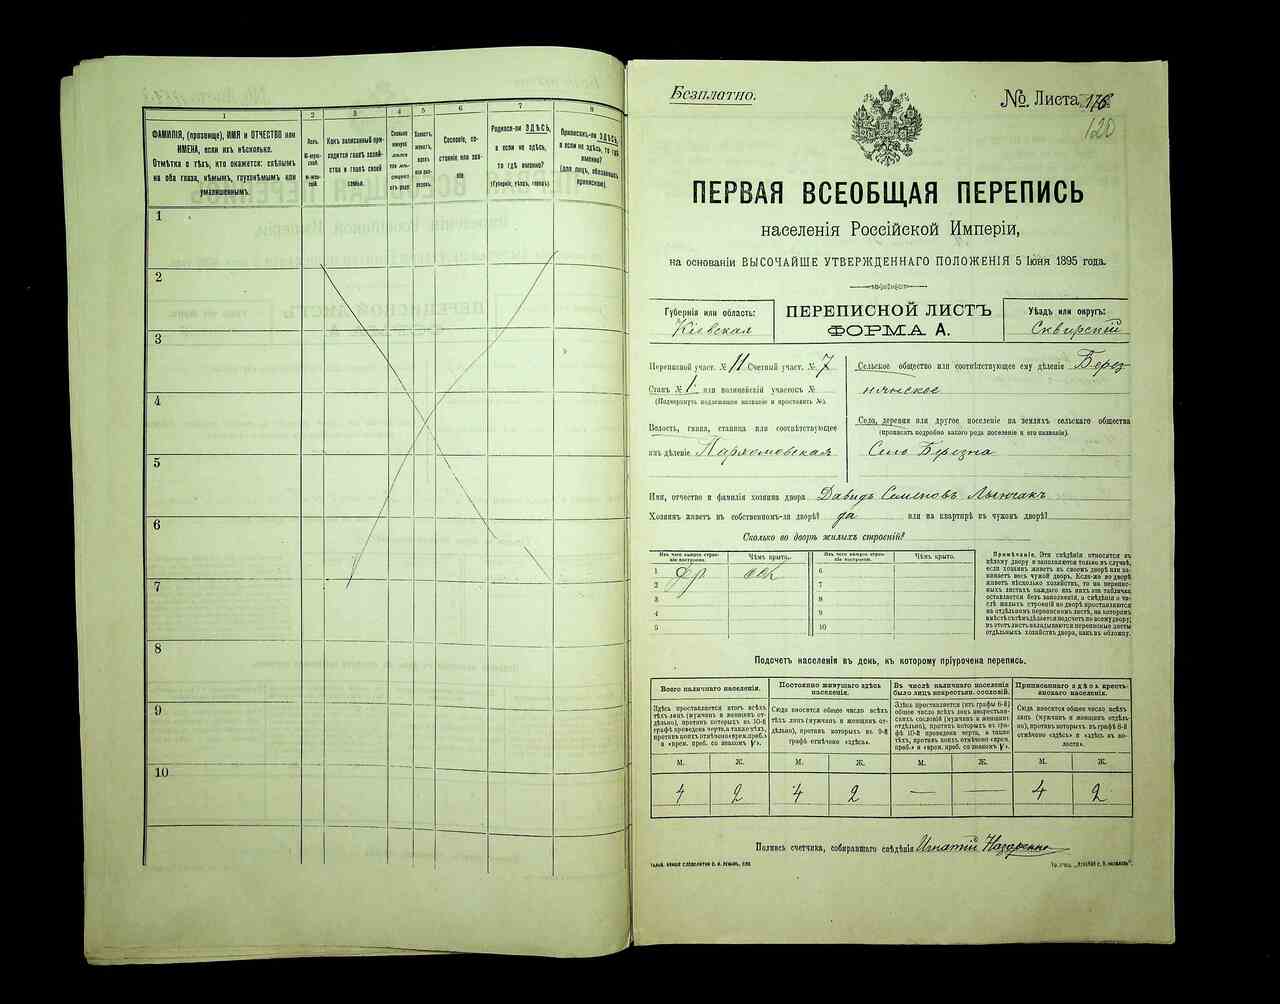 1
2
3
4
5
6
7
8
ФАМИЛІЯ, (прозвище), ИМЯ и ОТЧЕСТВО или
ИМЕНА, если ихъ нѣсколько.
Отмѣтка о тѣхъ, кто окажется: слѣпымъ
на оба глаза, нѣмымъ, глухонѣмымъ или
умалишеннымъ.
Полъ.
М-мужской.
Ж-женскій.
Какъ записанный приходится
главѣ хозяйства
и главѣ своей
семьи.
Сколько
минуло
лѣтъ
Холостъ,
женатъ,
вдовъ
или разведенъ.
Сословіе, состояніе
или званіе
Родился-ли ЗДѢСЬ,
а если не здѣсь,
то гдѣ именно?
(Губернія, уѣздъ, городъ)
Приписанъ-ли ЗДѢСЬ,
а если не здѣсь, то гдѣ
именно?
(для лицъ, обязанныхъ
припискою)
1
2
3
4
5
6
7
8
9
10
Безплатно.
№ Листа 176
120
ПЕРВАЯ ВСЕОБЩАЯ ПЕРЕПИСЬ
населенія Россійской Имперіи,
на основаніи ВЫСОЧАЙШЕ УТВЕРЖДЕННАГО ПОЛОЖЕНІЯ 5 Іюня 1895 года.
Губернія или область:
Кіевская
ПЕРЕПИСНОЙ ЛИСТЪ
ФОРМА А.
Уѣздъ или округъ:
Сквирскій
Переписной участ. № 11 Счетный участ. № 7
Станъ № 1 или полицейскій участокъ №
(Подчеркнуть подлежащее названіе и проставить №).
Волость, гмина, станица или соотвѣтствующее
имъ дѣленіе Пархомовская
Сельское общество или соотвѣтствующее ему дѣленіе Берез
нянское
Села, деревня или другое поселеніе на земляхъ сельскаго общества
(прописать подробно какого рода поселеніе и его названіе).
Село Березна
Имя, отчество и фамилія хозяина двора Давидъ Семеновъ
Хозяинъ живетъ въ собственномъ-ли дворѣ? да или на квартирѣ въ чужомъ дворѣ?
Сколько во дворѣ жилыхъ строеній?
Изъ чего выведен строеніе построено.
Чѣмъ крыто.
Изъ чего выведен строеніе построено.
Чѣмъ крыто.
1 др
2
3
4
5
6
7
8
9
10
Примѣчаніе. Эти свѣдѣнія относятся къ
цѣлому двору и заполняются только въ случаѣ,
если хозяинъ живетъ въ своемъ дворѣ или занимаетъ
весь чужой дворъ. Если-же во дворѣ
живетъ нѣсколько хозяйствъ, то на переписныхъ
листахъ каждаго изъ нихъ эта табличка
оставляется безъ заполненія, а свѣдѣнія о числѣ
жилыхъ строеній во дворѣ проставляются
на отдѣльномъ переписномъ листѣ, на которомъ
вмѣстѣ съ тѣмъ дѣлается подсчетъ по всему двору;
въ этотъ листъ вкладываются переписные листы
отдѣльныхъ хозяйствъ двора, какъ въ обложку.
Подсчетъ населенія въ день, къ которому пріурочена перепись.
Всего наличнаго населенія.
Здѣсь проставляется итогъ всѣхъ
тѣхъ лицъ (мужчинъ и женщинъ отдѣльно),
противъ которыхъ въ 10-й
графѣ проведена черта, а также тѣхъ,
противъ коихъ отмѣчено «врем. проб.»
и «врем. проб. со знакомъ V».
Постоянно живущаго здѣсь
населенія.
Сюда вносится общее число всѣхъ
тѣхъ лицъ (мужчинъ и женщинъ отдѣльно),
противъ которыхъ въ 9-й
графѣ отмѣчено «здѣсь».
Въ числѣ наличнаго населенія
было лицъ некрестьян. сословій.
Здѣсь проставляется (изъ графы 6-й)
общее число всѣхъ лицъ некрестьянскихъ
сословій (мужчинъ и женщинъ
отдѣльно), противъ которыхъ въ графѣ
10-й проведена черта, а также
тѣхъ, противъ коихъ отмѣчено «врем.
проб.» и «врем. проб. со знакомъ V».
Приписаннаго здѣсь крестьянскаго
населенія.
Сюда вносится общее число всѣхъ
лицъ (мужчинъ и женщинъ отдѣльно),
противъ которыхъ въ графѣ 8-й
отмѣчено «здѣсь» и «здѣсь въ волости».
М. Ж. М. Ж. М. Ж. М. Ж.
4 2 4 2 — — 4 2
Подпись счетчика, собиравшаго свѣдѣнія Игнатій Назаренко